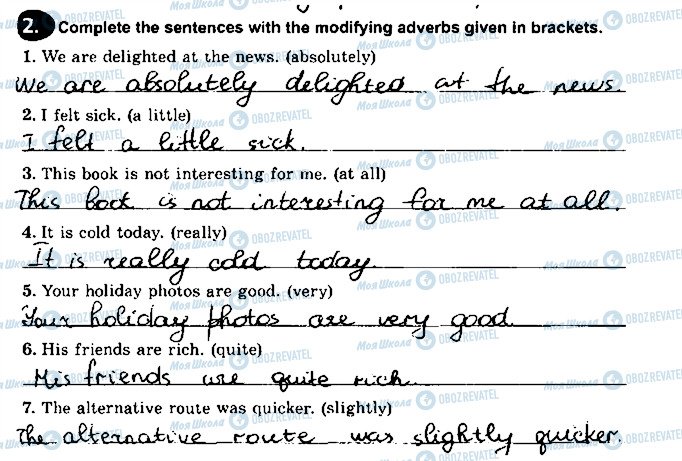 2. Complete the sentences with the modifying adverbs given in brackets.
1. We are delighted at the news. (absolutely)
We are absolutely delighted at the news
2. I felt sick. (a little)
I felt a little sick.
3. This book is not interesting for me. (at all)
This book is not interesting for me at all.
4. It is cold today. (really)
It is really cold today.
5. Your holiday photos are good. (very)
Your holiday photos are very good.
6. His friends are rich. (quite)
His friends are quite rich.
7. The alternative route was quicker. (slightly)
The alternative route was slightly quicker.